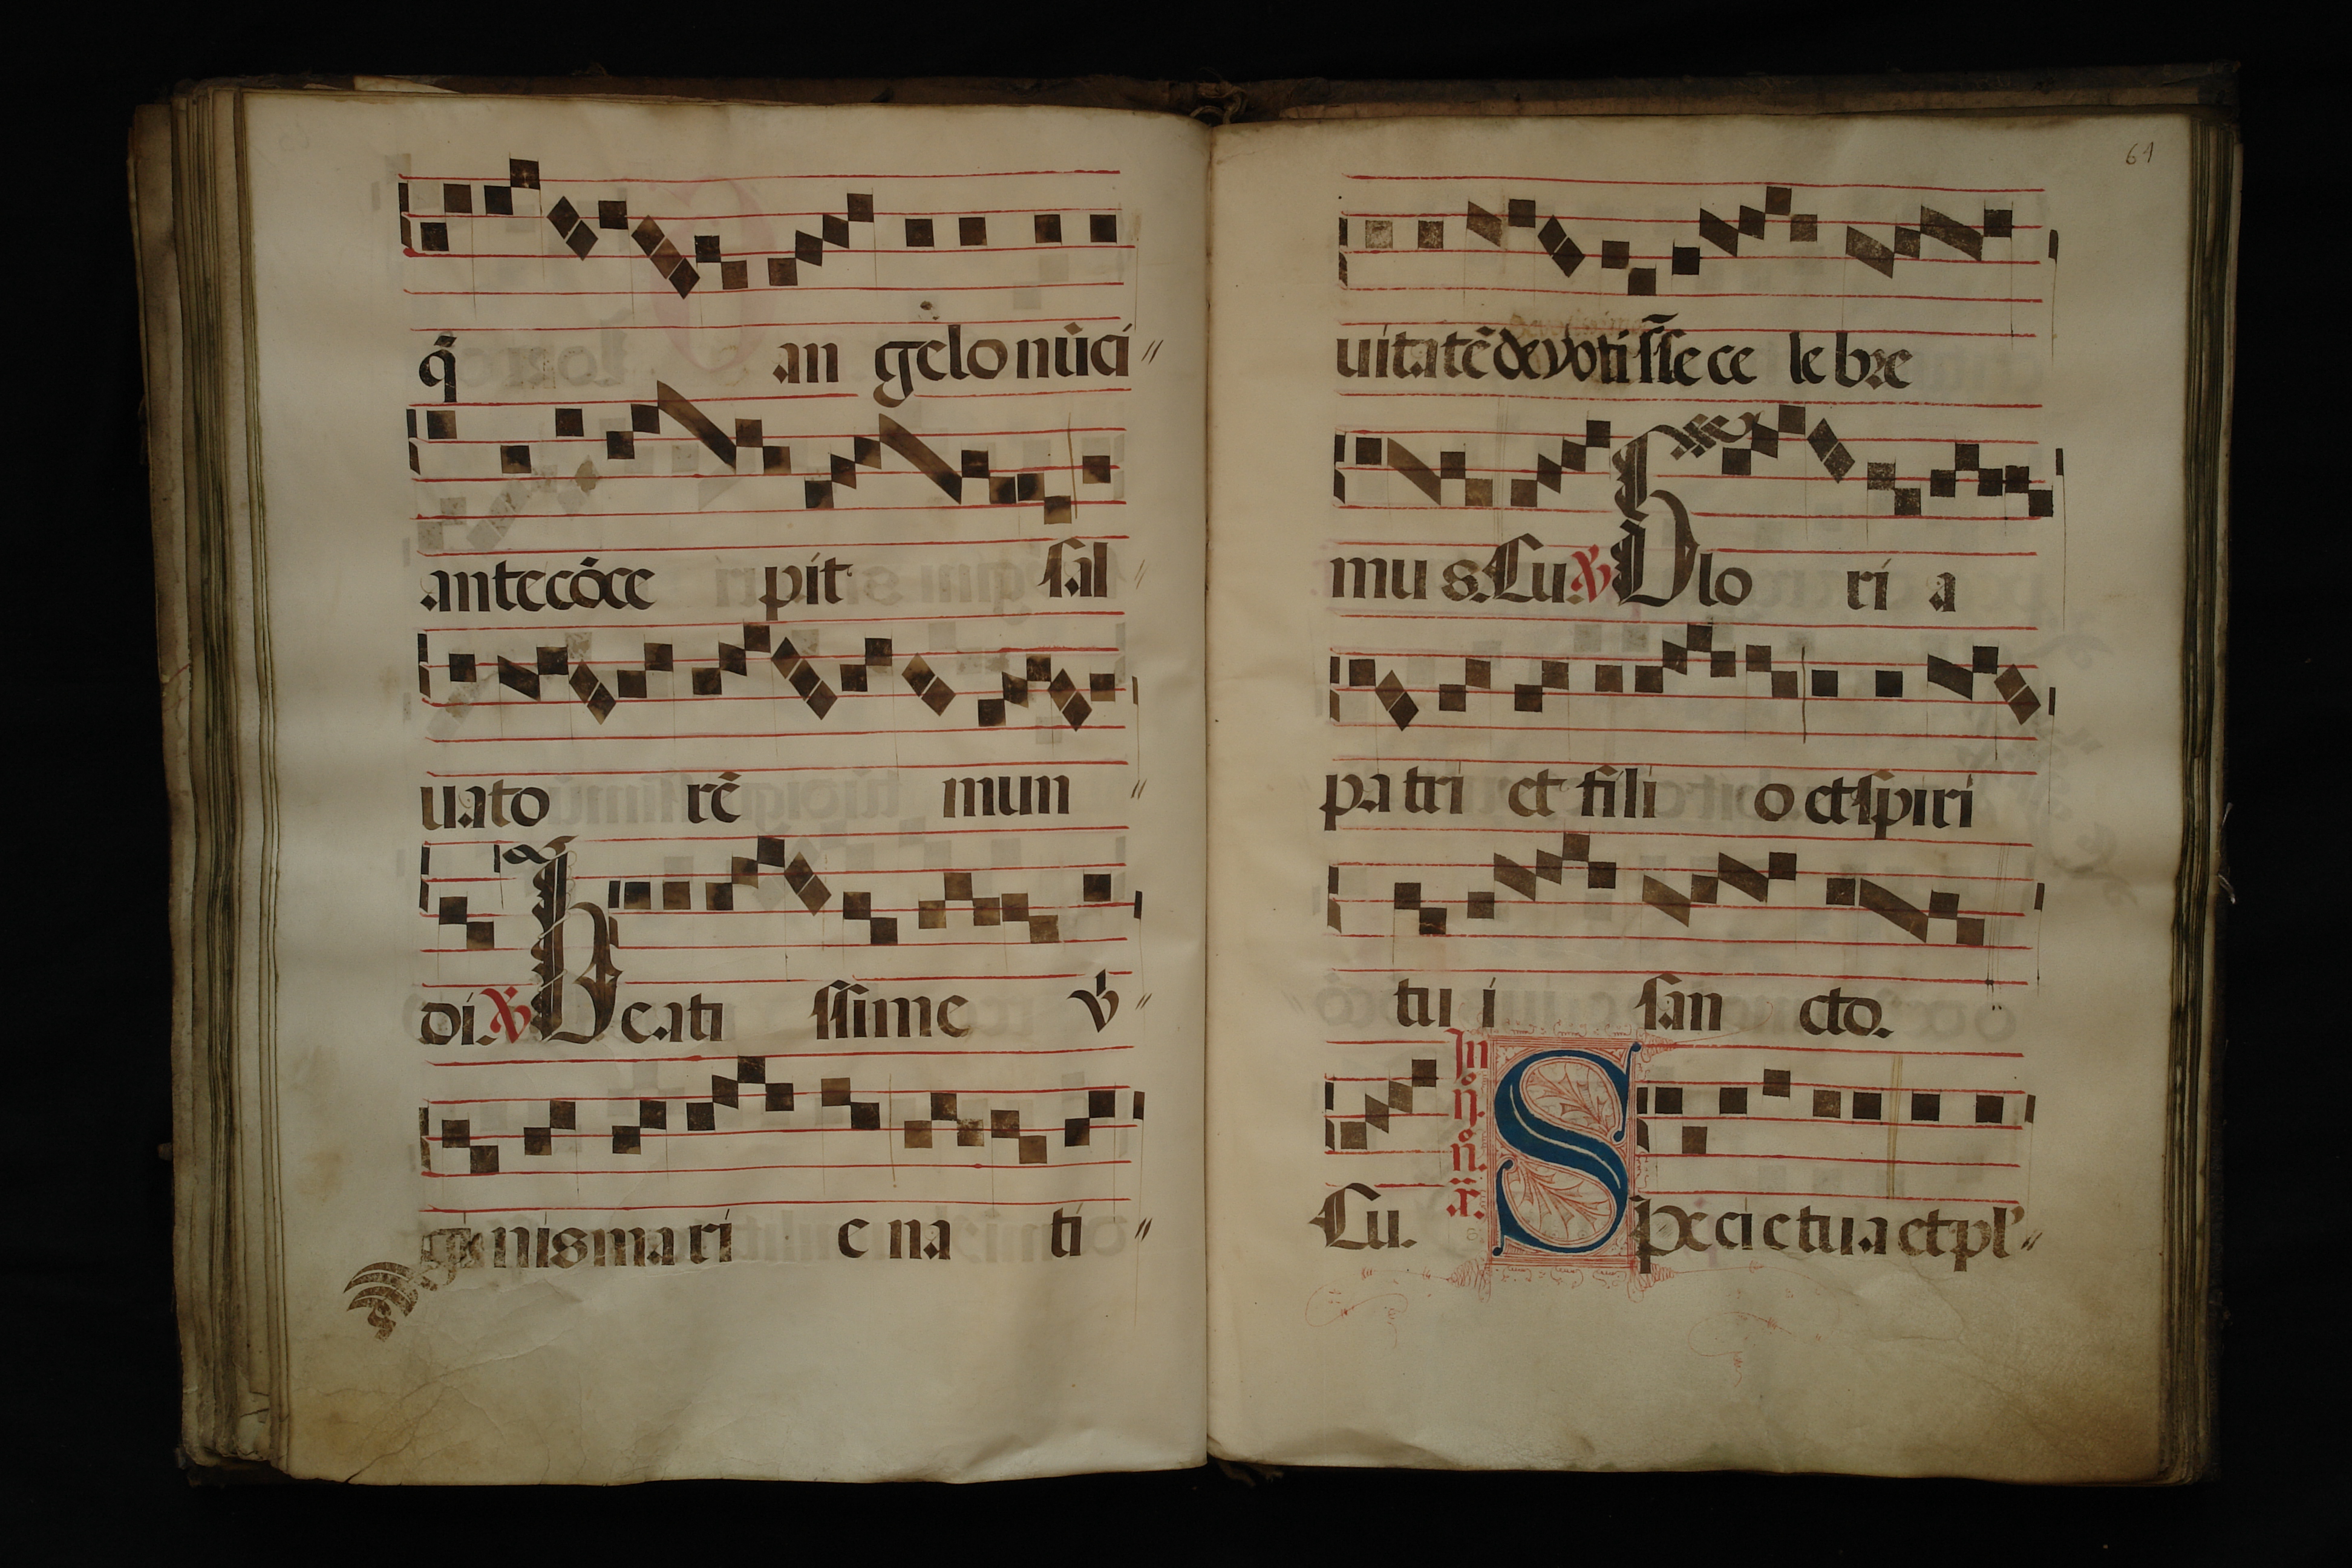 q̄ an gelo nūci〃
ante cōce pit sal〃
uato rē mun〃
di. ℣ Beati ssime v̄〃
gi nis ma ri e na ti〃
61
uitatē devotiss̄e ce le bre
mu s. Lu. ℣ Glo ri a
pa tri et fili o et spiri
tu i san cto.
Lu. In
Speci e tu a et pl̄〃